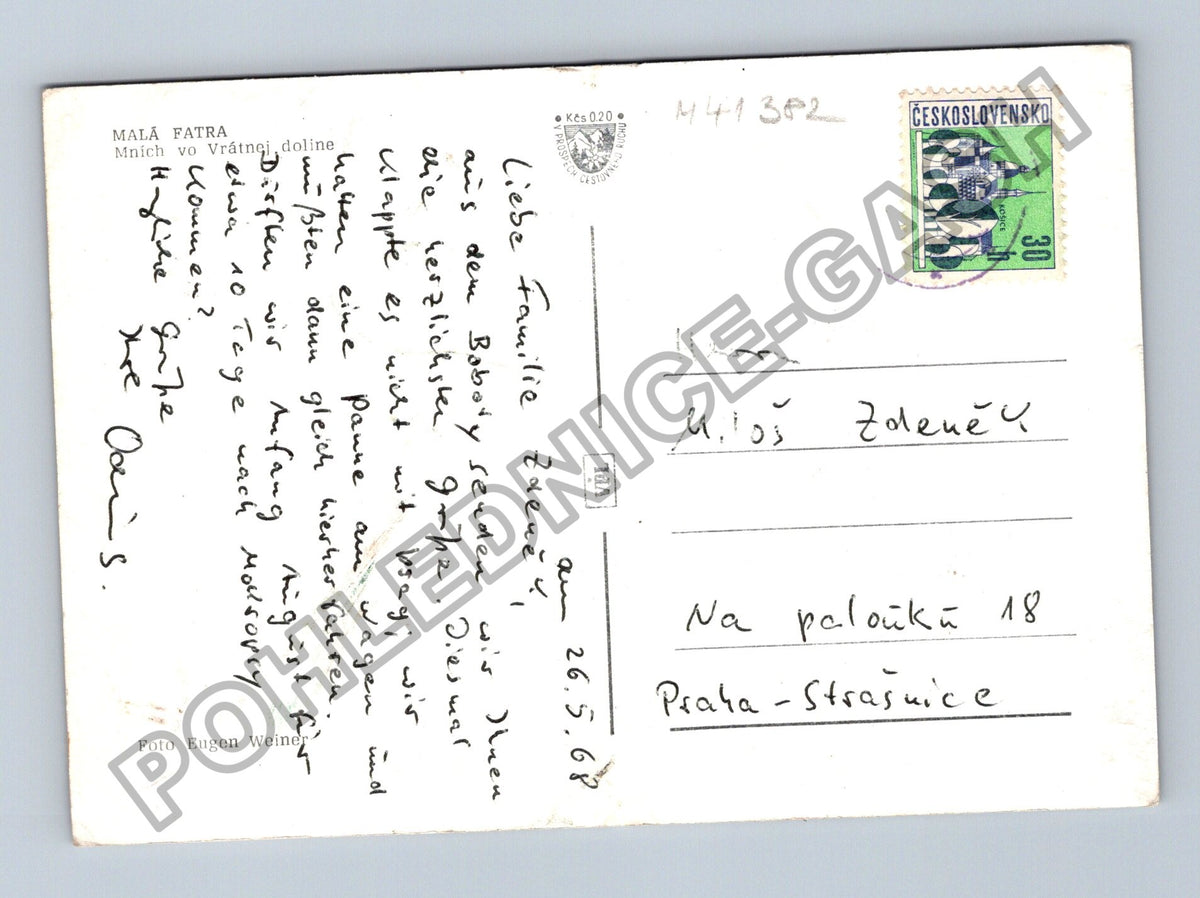 MALÁ FATRA
Mních vo Vrátnej doline
• Kčs 0.20 •
V PROSPECH CESTOVNÉHO RUCHU
M41 382
ČESKOSLOVENSKO
KOŠICE
30 h
am 26.5.68
Liebe Familie Zdeněk,
aus dem Boboty senden wir Ihnen
die herzlichsten Grüße. Diesmal
klappte es nicht mit Prag, wir
hatten eine Panne am Wagen und
mußten dann gleich hierher fahren.
Dürften wir Anfang August für
etwa 10 Tage nach
kommen?
Herzliche Grüße
Ihre
Foto Eugen Weiner
Miloš Zdeněk
Na paloůků 18
Praha - Strašnice
POHLEDNICE-GARCH